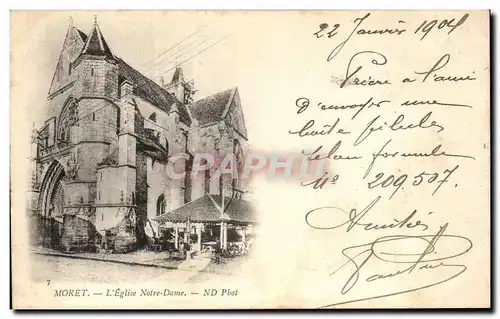 22 Janvier 1904
Prière à l'ami
d'envoyer une
boîte pilules
selon formule
Nº 209.507.
Amitiés
CPARAMA
7
MORET. — L'Église Notre-Dame. — ND Phot